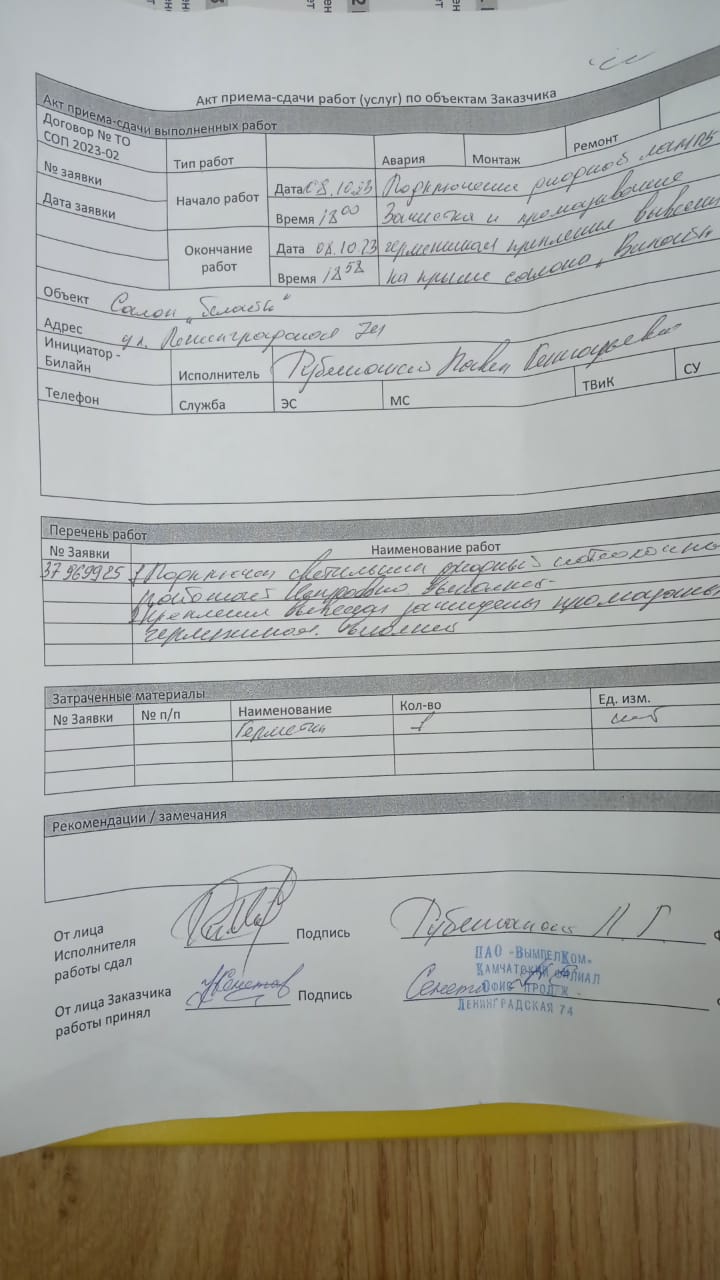 Акт приема-сдачи работ (услуг) по объектам Заказчика
Акт приема-сдачи выполненных работ
Договор № ТО СОП 2023-02
Тип работ
Авария
Монтаж
Ремонт
№ заявки
Дата заявки
Начало работ
Дата 08.10.23
Подключения диодной лампы
Время 18 00
Зачистка и промазывание
Окончание работ
Дата 08.10.23
герметиком крепления вывески
Время 18 58
на крыше салона „Билайн
Объект Салон „Билайн“
Адрес ул. Ленинградская 74
Инициатор - Билайн
Исполнитель
Павел Геннадьевич
Телефон
Служба
ЭС
МС
ТВиК
СУ
Перечень работ
№ Заявки
Наименование работ
37969925
1 Подключен светильник диодный
работает исправно. Выполнен
2 Крепления вывески зачищены промазаны
герметиком. Выполнен
Затраченные материалы
№ Заявки
№ п/п
Наименование
Кол-во
Ед. изм.
Герметик
1
шт
Рекомендации / замечания
От лица Исполнителя работы сдал
Подпись
П. Г.
От лица Заказчика работы принял
Подпись
ПАО «ВымпелКом»
Камчатский филиал
Офис продаж
Ленинградская 74